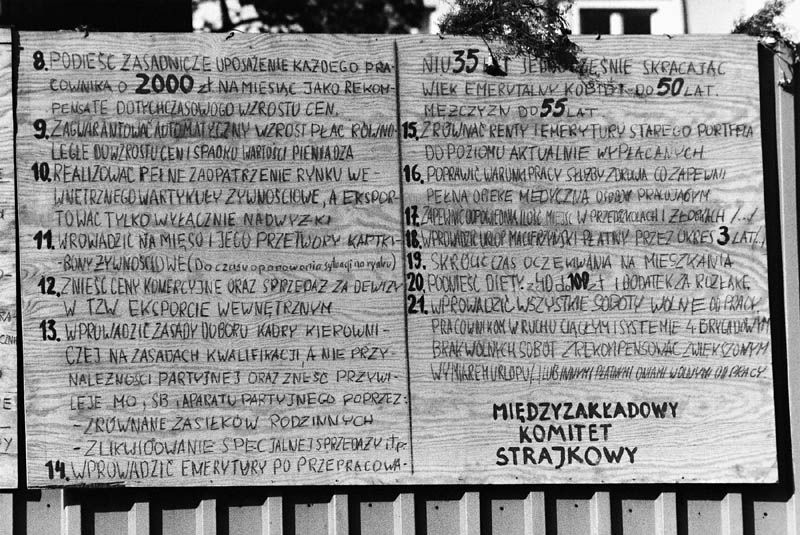 8. PODIEŚĆ ZASADNICZE UPOSAŻENIE KAŻDEGO PRA-
COWNIKA O 2000 zł NA MIESIĄC JAKO REKOM-
PENSATĘ DOTYCHCZASOWEGO WZROSTU CEN.
9. ZAGWARANTOWAĆ AUTOMATYCZNY WZROST PŁAC RÓWNO-
LEGLE DO WZROSTU CEN I SPADKU WARTOŚCI PIENIĄDZA
10. REALIZOWAĆ PEŁNE ZAOPATRZENIE RYNKU WE-
WNĘTRZNEGO W ARTYKUŁY ŻYWNOŚCIOWE, A EKSPOR-
TOWAĆ TYLKO WYŁĄCZNIE NADWYŻKI
11. WROWADZIĆ NA MIĘSO I JEGO PRZETWORY KARTKI-
BONY ŻYWNOŚCIOWE (Do czasu opanowania sytuacji na rynku)
12. ZNIEŚĆ CENY KOMERCYJNE ORAZ SPRZEDAŻ ZA DEWIZY
W TZW. EKSPORCIE WEWNĘTRZNYM
13. WPROWADZIĆ ZASADY DOBORU KADRY KIEROWNI-
CZEJ NA ZASADACH KWALIFIKACJI, A NIE PRZY-
NALEŻNOŚCI PARTYJNEJ ORAZ ZNEŚĆ PRZYWI-
LEJE MO, SB i APARATU PARTYJNEGO POPRZEZ:
- ZRÓWNANE ZASIŁKÓW RODZINNYCH
- ZLIKWIDOWANIE SPECJALNEJ SPRZEDAŻY itp.
14. WPROWADZIĆ EMERYTURY PO PRZEPRACOWA-
NIU 35 LAT JEDNOCZEŚNIE SKRACAJĄC
WIEK EMERYTALNY KOBIET DO 50 LAT.
MĘŻCZYZN DO 55 LAT.
15. ZRÓWNAĆ RENTY I EMERYTURY STAREGO PORTFELA
DO POZIOMU AKTUALNIE WYPŁACANYCH
16. POPRAWIĆ WARUNKI PRACY SŁUŻBY ZDROWIA CO ZAPEWNI
PEŁNĄ OPIEKĘ MEDYCZNĄ OSOBOM PRACUJĄCYM
17. ZAPEWNIĆ ODPOWIEDNIĄ ILOŚĆ MIEJSC W PRZEDSZKOLACH I ŻŁOBKACH /.../
18. WPROWADZIĆ URLOP MACIERZYŃSKI PŁATNY PRZEZ OKRES 3 LAT/...
19. SKRÓCIĆ CZAS OCZEKIWANIA NA MIESZKANIA
20. PODNIEŚĆ DIETY z 40 do 100 zł I DODATEK ZA ROZŁĄKĘ
21. WPROWADZIĆ WSZYSTKIE SOBOTY WOLNE OD PRACY
PRACOWNIKOM W RUCHU CIĄGŁYM I SYSTEMIE 4 BRYGADOWYM
BRAK WOLNYCH SOBÓT ZREKOMPENSOWAĆ ZWIĘKSZONYM
WYMIAREM URLOPU / LUB INNYMI PŁATNYMI DNIAMI WOLNYMI OD PRACY
MIĘDZYZAKŁADOWY
KOMITET
STRAJKOWY